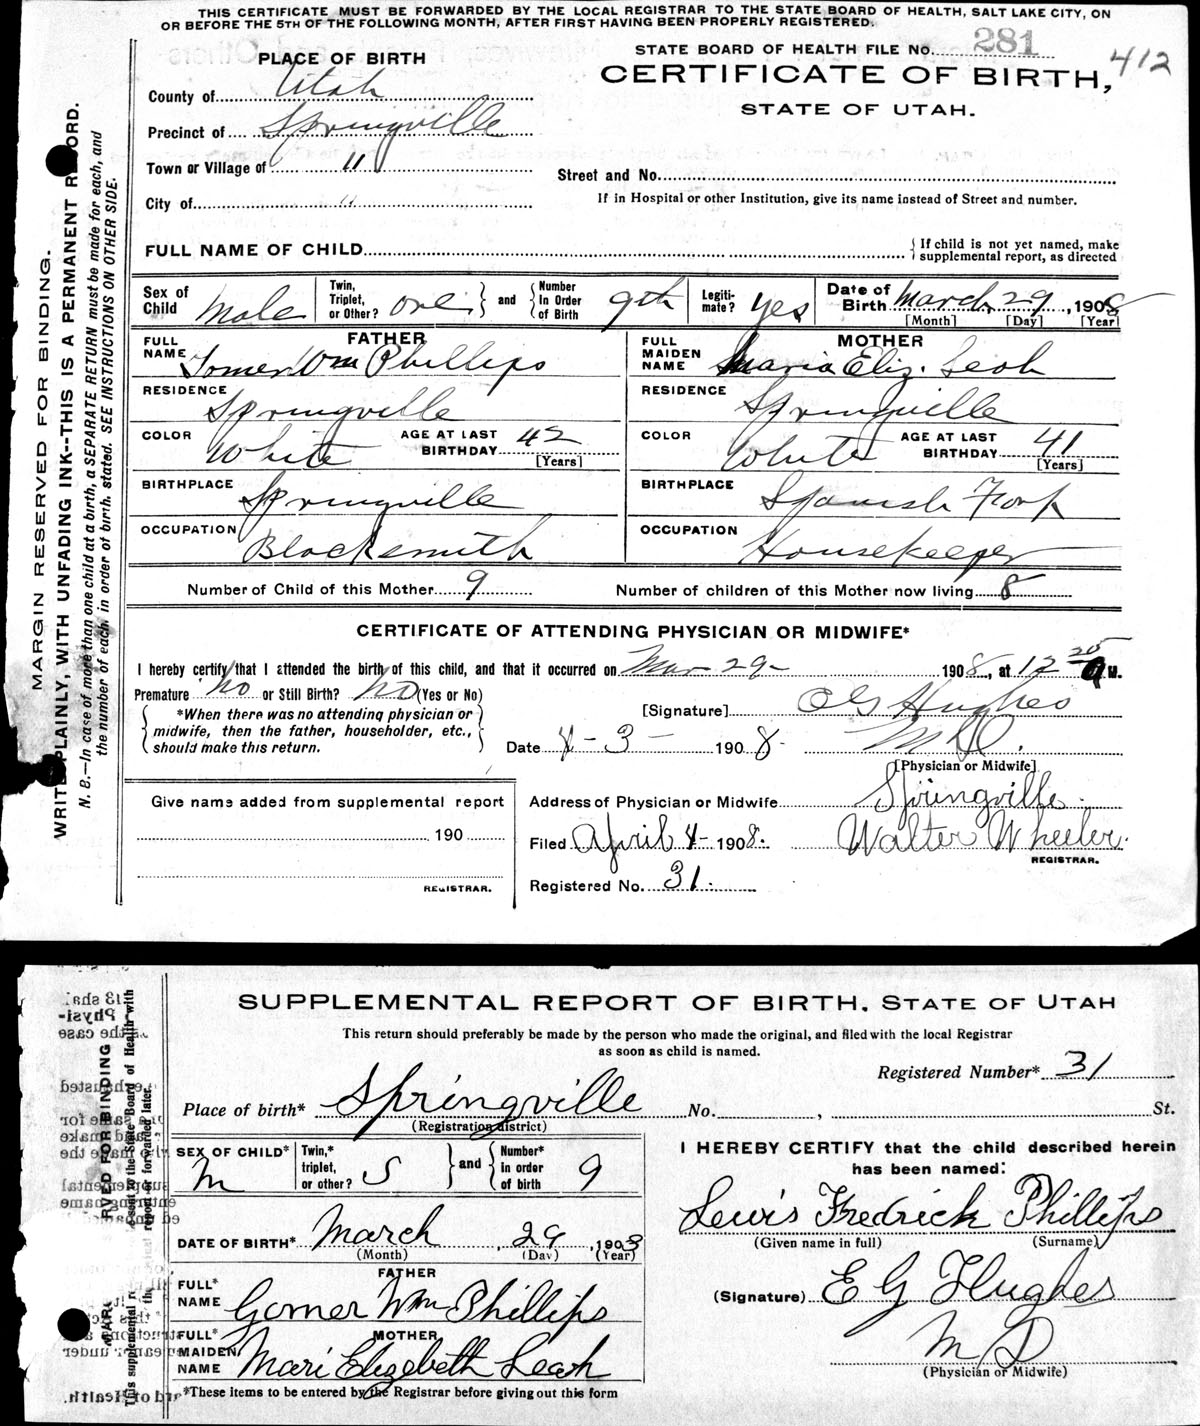 THIS CERTIFICATE MUST BE FORWARDED BY THE LOCAL REGISTRAR TO THE STATE BOARD OF HEALTH, SALT LAKE CITY, ON
OR BEFORE THE 5TH OF THE FOLLOWING MONTH, AFTER FIRST HAVING BEEN PROPERLY REGISTERED.
MARGIN RESERVED FOR BINDING.
WRITE PLAINLY, WITH UNFADING INK--THIS IS A PERMANENT RECORD.
N. B.—In case of more than one child at a birth, a SEPARATE RETURN must be made for each, and
the number of each, in order of birth, stated. SEE INSTRUCTIONS ON OTHER SIDE.
PLACE OF BIRTH
STATE BOARD OF HEALTH FILE No. 281
412
CERTIFICATE OF BIRTH,
STATE OF UTAH.
County of Utah
Precinct of Springville
Town or Village of "
City of "
Street and No.
If in Hospital or other Institution, give its name instead of Street and number.
FULL NAME OF CHILD
{If child is not yet named, make
supplemental report, as directed
Sex of Child Male
Twin, Triplet, or Other? one } and { Number In Order of Birth 9th
Legiti- mate? yes
Date of Birth March 29, 1908
[Month] [Day] [Year]
FATHER
FULL NAME Gomer Wm Phillips
RESIDENCE Springville
COLOR White AGE AT LAST BIRTHDAY 42 [Years]
BIRTHPLACE Springville
OCCUPATION Blacksmith
MOTHER
FULL MAIDEN NAME Maria Eliz. Leah
RESIDENCE Springville
COLOR White AGE AT LAST BIRTHDAY 41 [Years]
BIRTHPLACE Spanish Fork
OCCUPATION Housekeeper
Number of Child of this Mother 9 Number of children of this Mother now living 8
CERTIFICATE OF ATTENDING PHYSICIAN OR MIDWIFE*
I hereby certify that I attended the birth of this child, and that it occurred on Mar 29- 1908, at 12 20 a M.
Premature no or Still Birth? no (Yes or No)
*When there was no attending physician or
midwife, then the father, householder, etc.,
should make this return.
[Signature] Hughes
Date 4-3- 1908. M D.
[Physician or Midwife]
Give name added from supplemental report
190
REGISTRAR.
Address of Physician or Midwife Springville
Filed April 4- 1908. Walter Wheeler.
REGISTRAR.
Registered No. 31.
SUPPLEMENTAL REPORT OF BIRTH, STATE OF UTAH
This return should preferably be made by the person who made the original, and filed with the local Registrar
as soon as child is named.
Registered Number* 31
Place of birth* Springville No. , St.
(Registration district)
SEX OF CHILD* M
Twin,* triplet, or other? S } and { Number* in order of birth 9
DATE OF BIRTH* March, 29, 1908
(Month) (Day) (Year)
FATHER
FULL* NAME Gomer Wm Phillips
MOTHER
FULL* MAIDEN NAME Mari Elizebeth Leah
*These items to be entered by the Registrar before giving out this form
I HEREBY CERTIFY that the child described herein
has been named:
Lewis Fredrick Phillips
(Given name in full) (Surname)
(Signature) E G Hughes
M D
(Physician or Midwife)